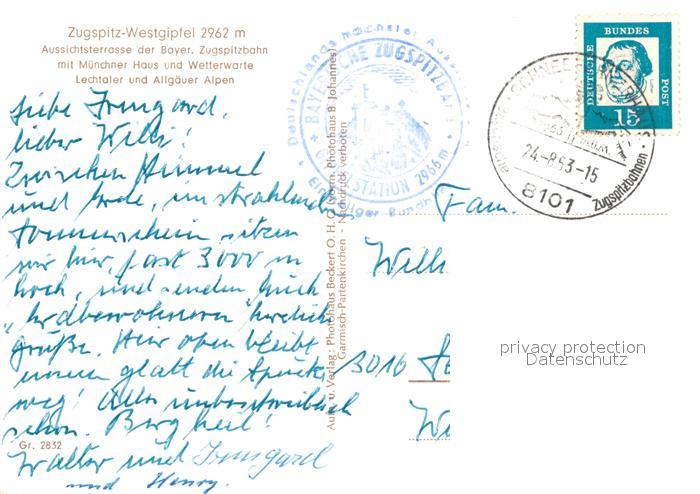 Zugspitz-Westgipfel 2962 m
Aussichtsterrasse der Bayer. Zugspitzbahn
mit Münchner Haus und Wetterwarte
Lechtaler und Allgäuer Alpen
Liebe Irmgard,
lieber Willi!
Zwischen Himmel
und Erde, im strahlenden
Sonnenschein sitzen
wir hier, fast 3000 m
hoch, und senden Euch
"Erdbewohnern" herzlich
Grüße. Hier oben bleibt
einem glatt die Spucke
weg! Alles unbeschreiblich
schön. Berg heil!
Gr. 2832
Walter und Irmgard
und Henry.
Aufn. u. Verlag: Photohaus Beckert O. H. G. (vorm. Photohaus B. Johannes)
Garmisch-Partenkirchen - Nachdruck verboten
Deutschlands höchster
BAYERISCHE ZUGSPITZBAHN
STATION 2966 m
DEUTSCHE BUNDES POST
15
24.-8.63-15
8101
Zugspitzbahnen
Fam.
Willi
3016
Wi
privacy protection
Datenschutz